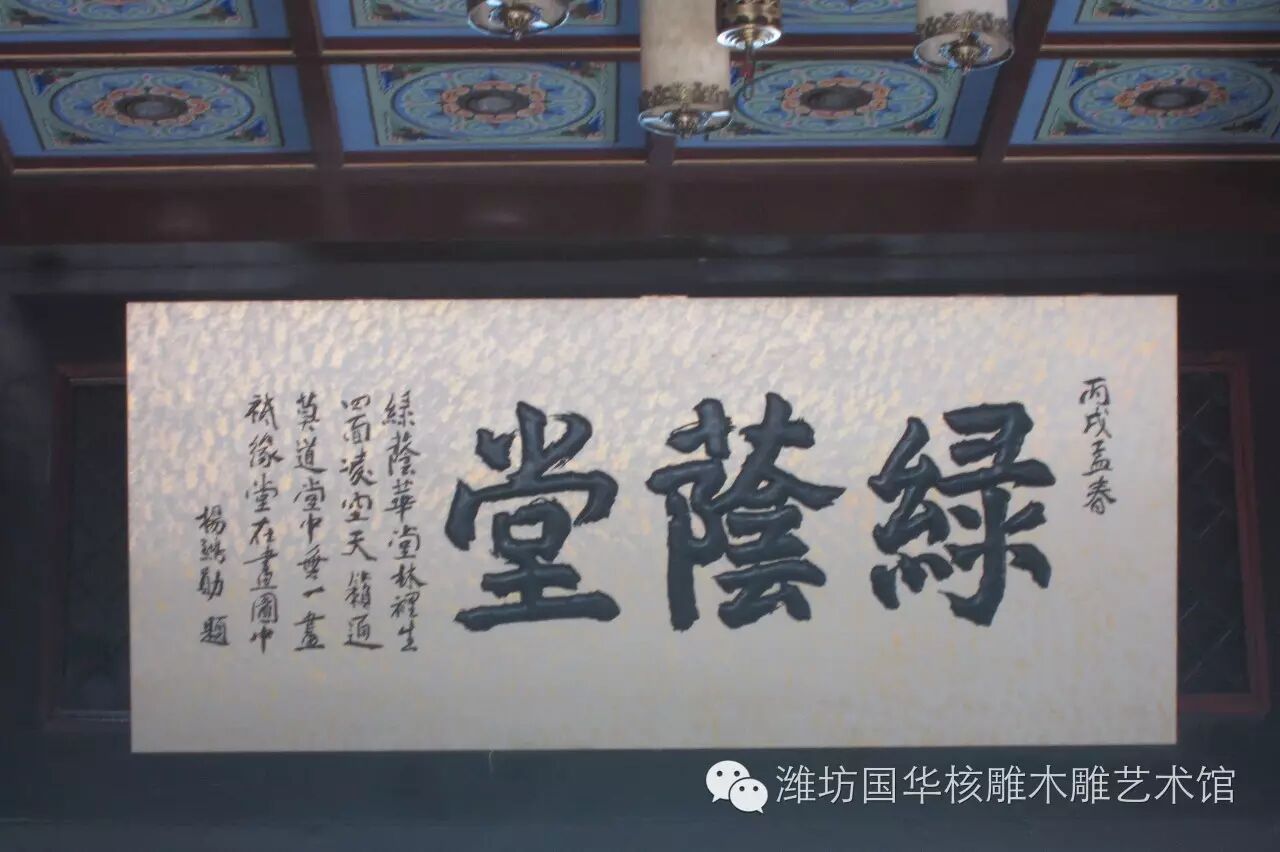 丙戌孟春
綠蔭堂
綠蔭華堂林裡生
四面凌空天籟通
莫道堂中無一畫
祇緣堂在畫圖中
楊 勛 題
潍坊国华核雕木雕艺术馆